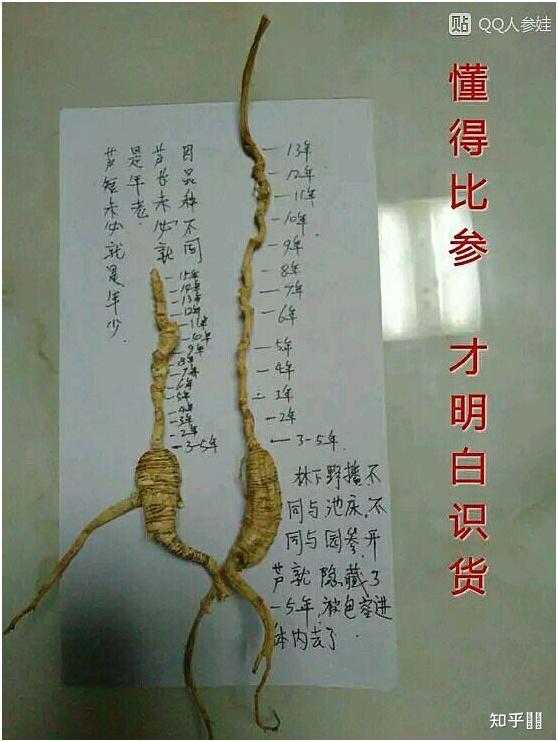 贴 QQ人参娃
懂得比参 才明白识货
因品种不同
芦长未必就
是年老.
芦短未必就是年少.
15年
14年
13年
12年
11年
10年
9年
8年
7年
6年
5年
4年
3年
2年
3-5年
13年
12年
11年
10年
9年
8年
7年
6年
5年
4年
3年
2年
3-5年.
林下野播不
同与池床,不
同与园参,开
芦就隐藏了
-5年,被包容进
体内去了.
知乎